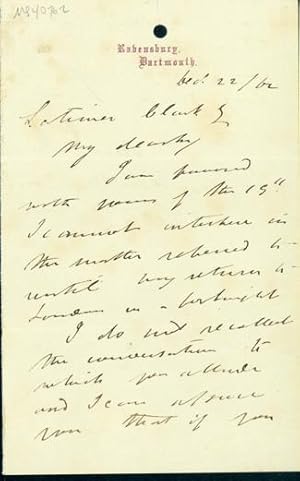 Ravensbury,
Dartmouth.
Dec. 22/62
Latimer Clark
My dear Sir
I am favored
with yours of the 19th
I cannot interfere in
the matter referred to
until my return to
London in a fortnight
I do not recollect
the conversation to
which you allude
and I can assure
you that if you